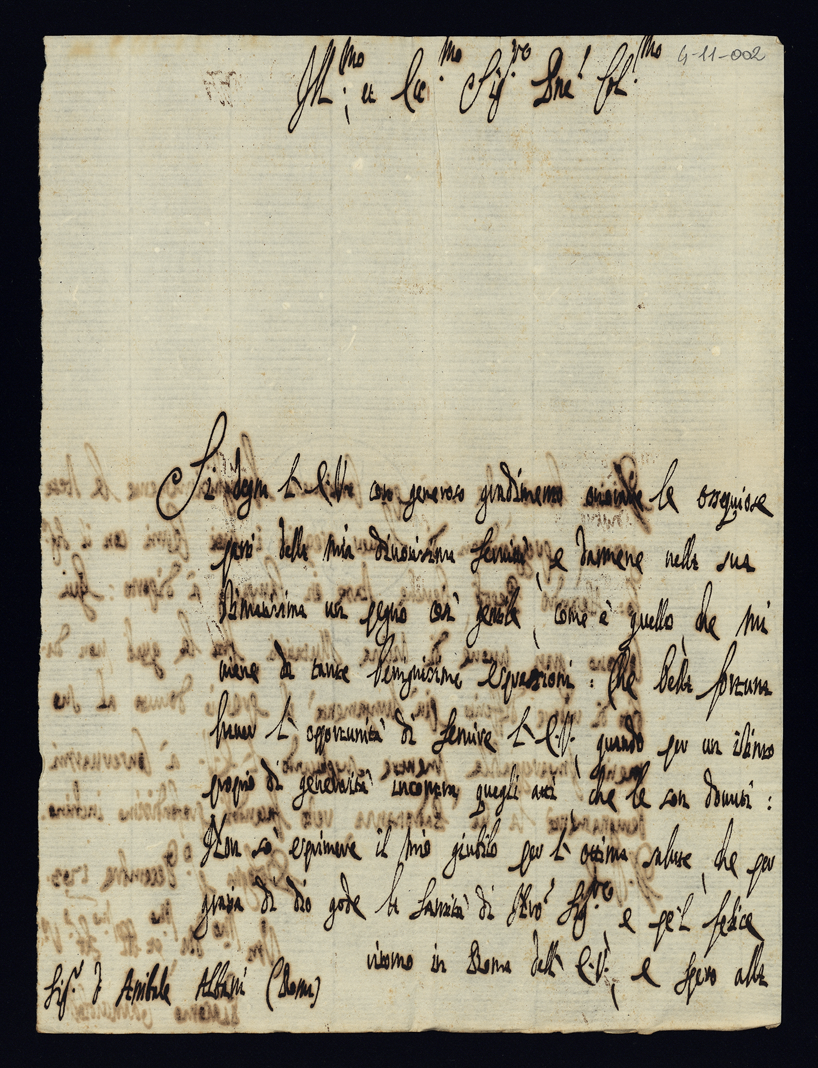 4-11-002
Ill.mo et Ecc.mo Sig.re Pne' Col.mo
Si degna l'E. Vra con generoso gradimento le ossequiose
della mia divotissima servitù, e darmene nella sua
stimatissima un pegno così gentile, come è quello, che mi
viene da tante benignissime espressioni: Che bella fortuna
haver l'opportunità di servire l'E.V., quando per un istinto
proprio di generosità incontra quegli atti, che le son dovuti:
Non sò esprimere il mio giubilo per l'ottima salute, che per
grazia di dio gode la Santità di Nro' Sig.re, e pe'l felice
ritorno in Roma dell'E.V., e spero alla
Sig.r D Anibale Albani (Roma)